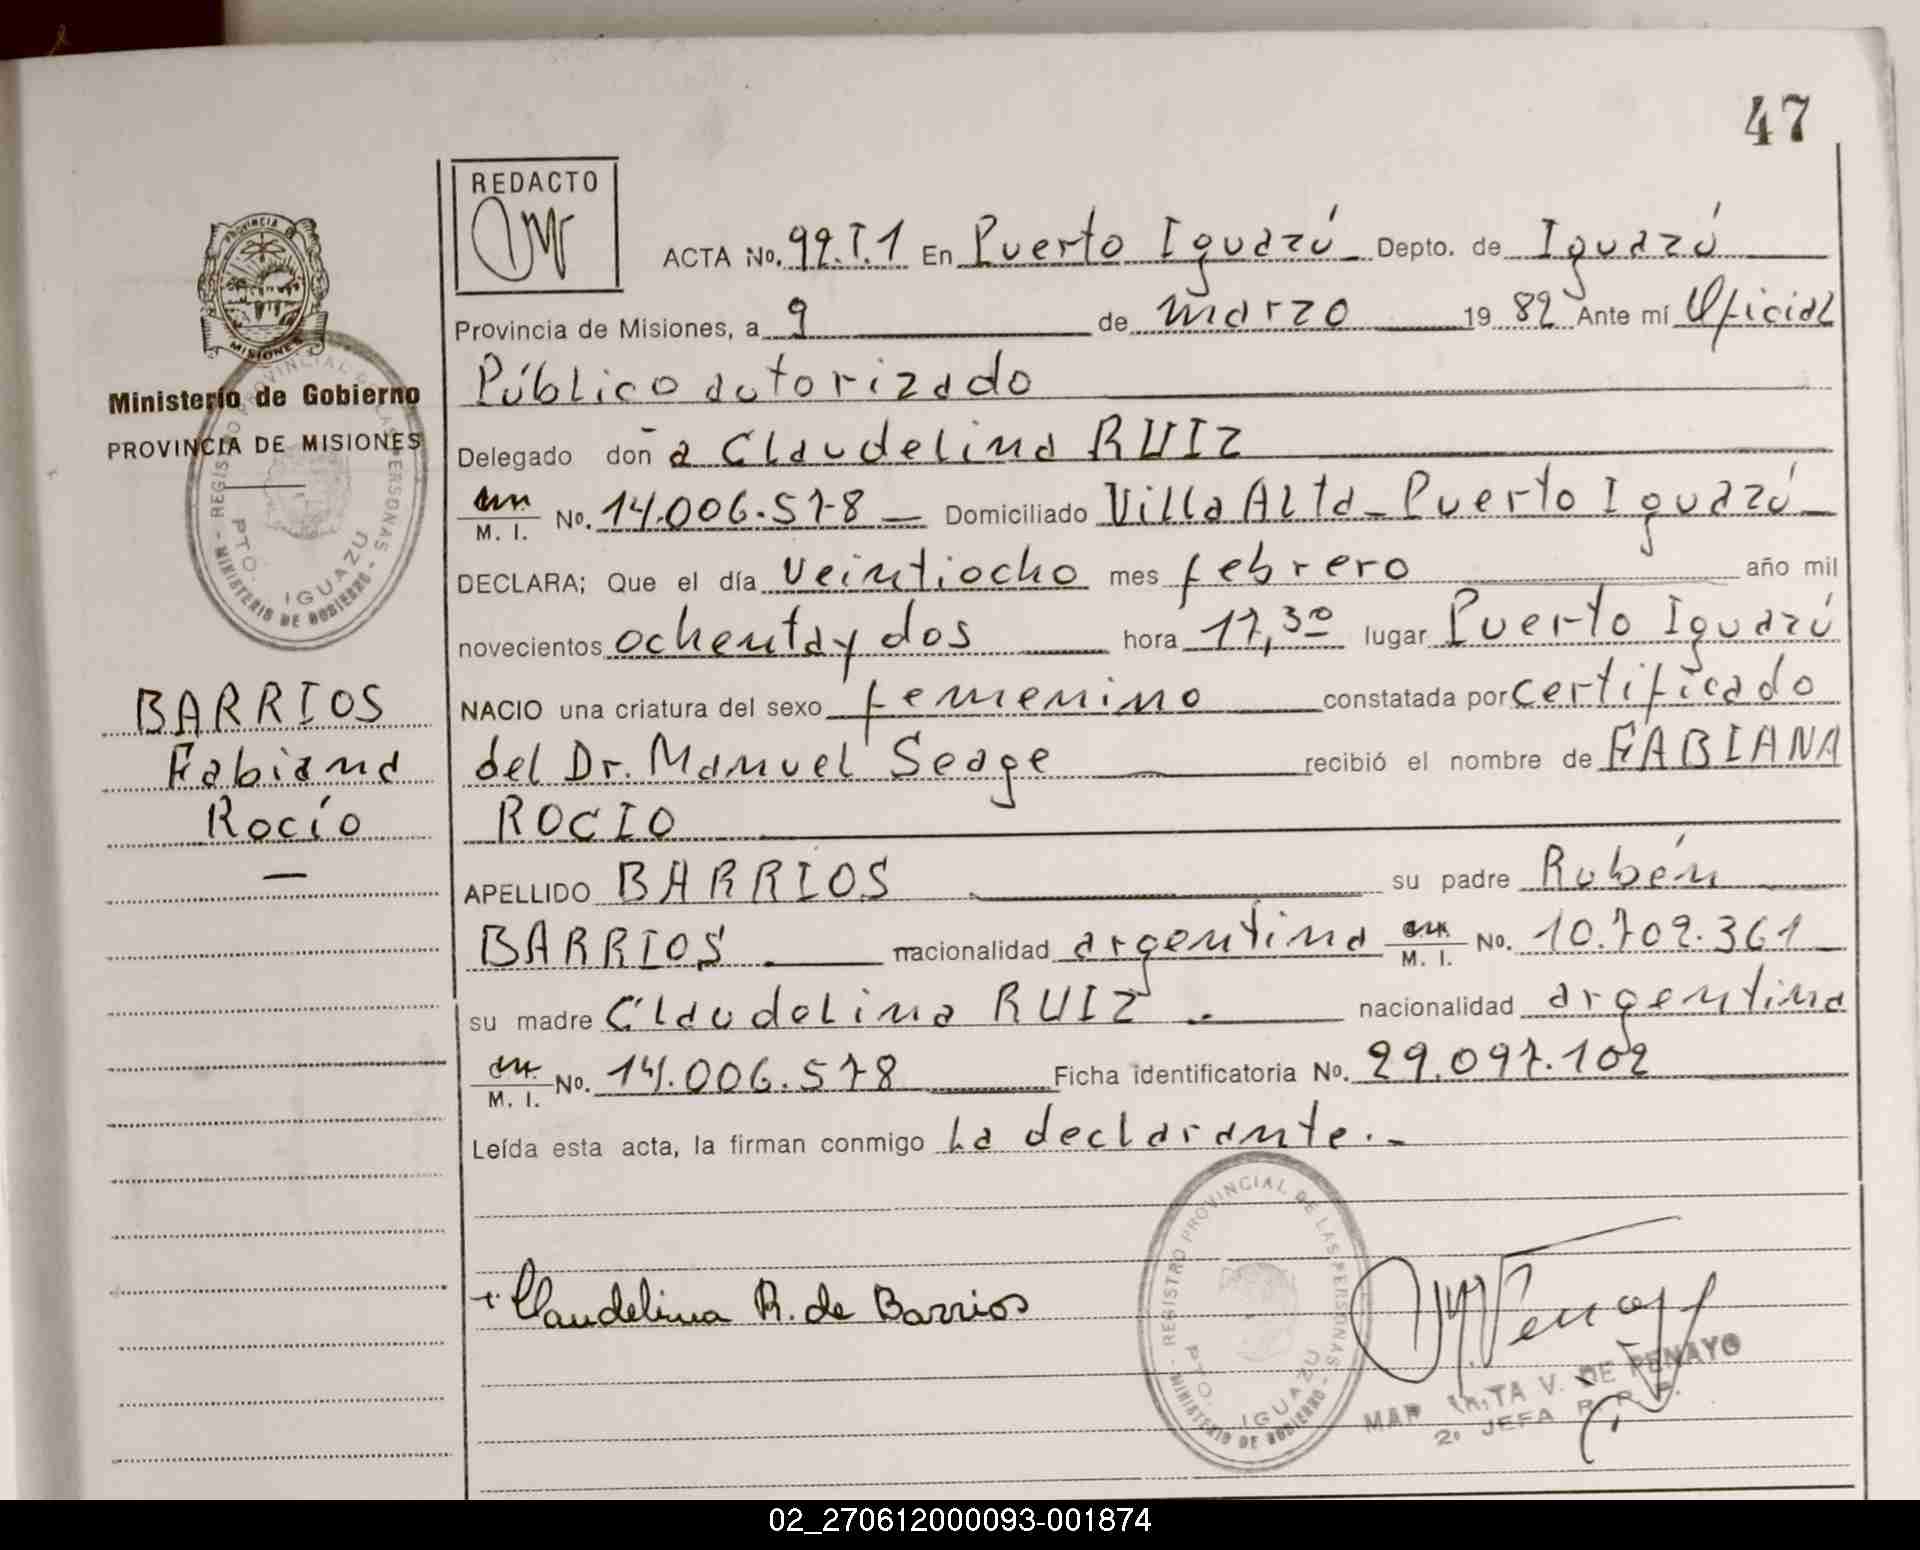 47
REDACTO
ACTA No. 92.T.1 En Puerto Iguazú Depto. de Iguazú
Provincia de Misiones, a 9 de marzo 1982 Ante mí Oficial
Público autorizado
Delegado doña Claudelina RUIZ
M. I. No. 14.006.578 Domiciliado Villa Alta - Puerto Iguazú
DECLARA; Que el día veintiocho mes febrero año mil
novecientos ochenta y dos hora 17,30 lugar Puerto Iguazú
NACIO una criatura del sexo femenino constatada por certificado
del Dr. Manuel Seage recibió el nombre de FABIANA
ROCIO
APELLIDO BARRIOS su padre Rubén
BARRIOS nacionalidad argentina M. I. No. 10.702.361
su madre Claudelina RUIZ nacionalidad argentina
M. I. No. 14.006.578 Ficha identificatoria No. 29.097.102
Leída esta acta, la firman conmigo La declarante.-
Claudelina R. de Barrios
V. DE PENAYO
2º JEFA R. P. P.
PROVINCIA D
MISIONES
Ministerio de Gobierno
PROVINCIA DE MISIONES
REGISTRO PROVINCIAL DE LAS PERSONAS
PTO. IGUAZU
- MINISTERIO DE GOBIERNO -
BARRIOS
Fabiana
Rocío
REGISTRO PROVINCIAL DE LAS PERSONAS
PTO. IGUAZU
- MINISTERIO DE GOBIERNO -
02_270612000093-001874